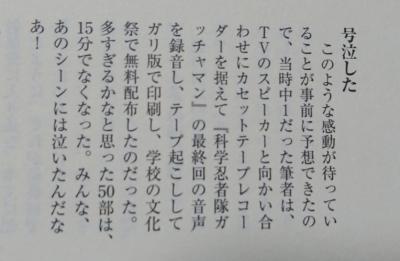 号泣した
このような感動が待ってい
ることが事前に予想できたの
で、当時中1だった筆者は、
TVのスピーカーと向かい合
わせにカセットテープレコー
ダーを据えて『科学忍者隊ガ
ッチャマン』の最終回の音声
を録音し、テープ起こしして
ガリ版で印刷し、学校の文化
祭で無料配布したのだった。
多すぎるかなと思った50部は、
15分でなくなった。みんな、
あのシーンには泣いたんだな
あ!